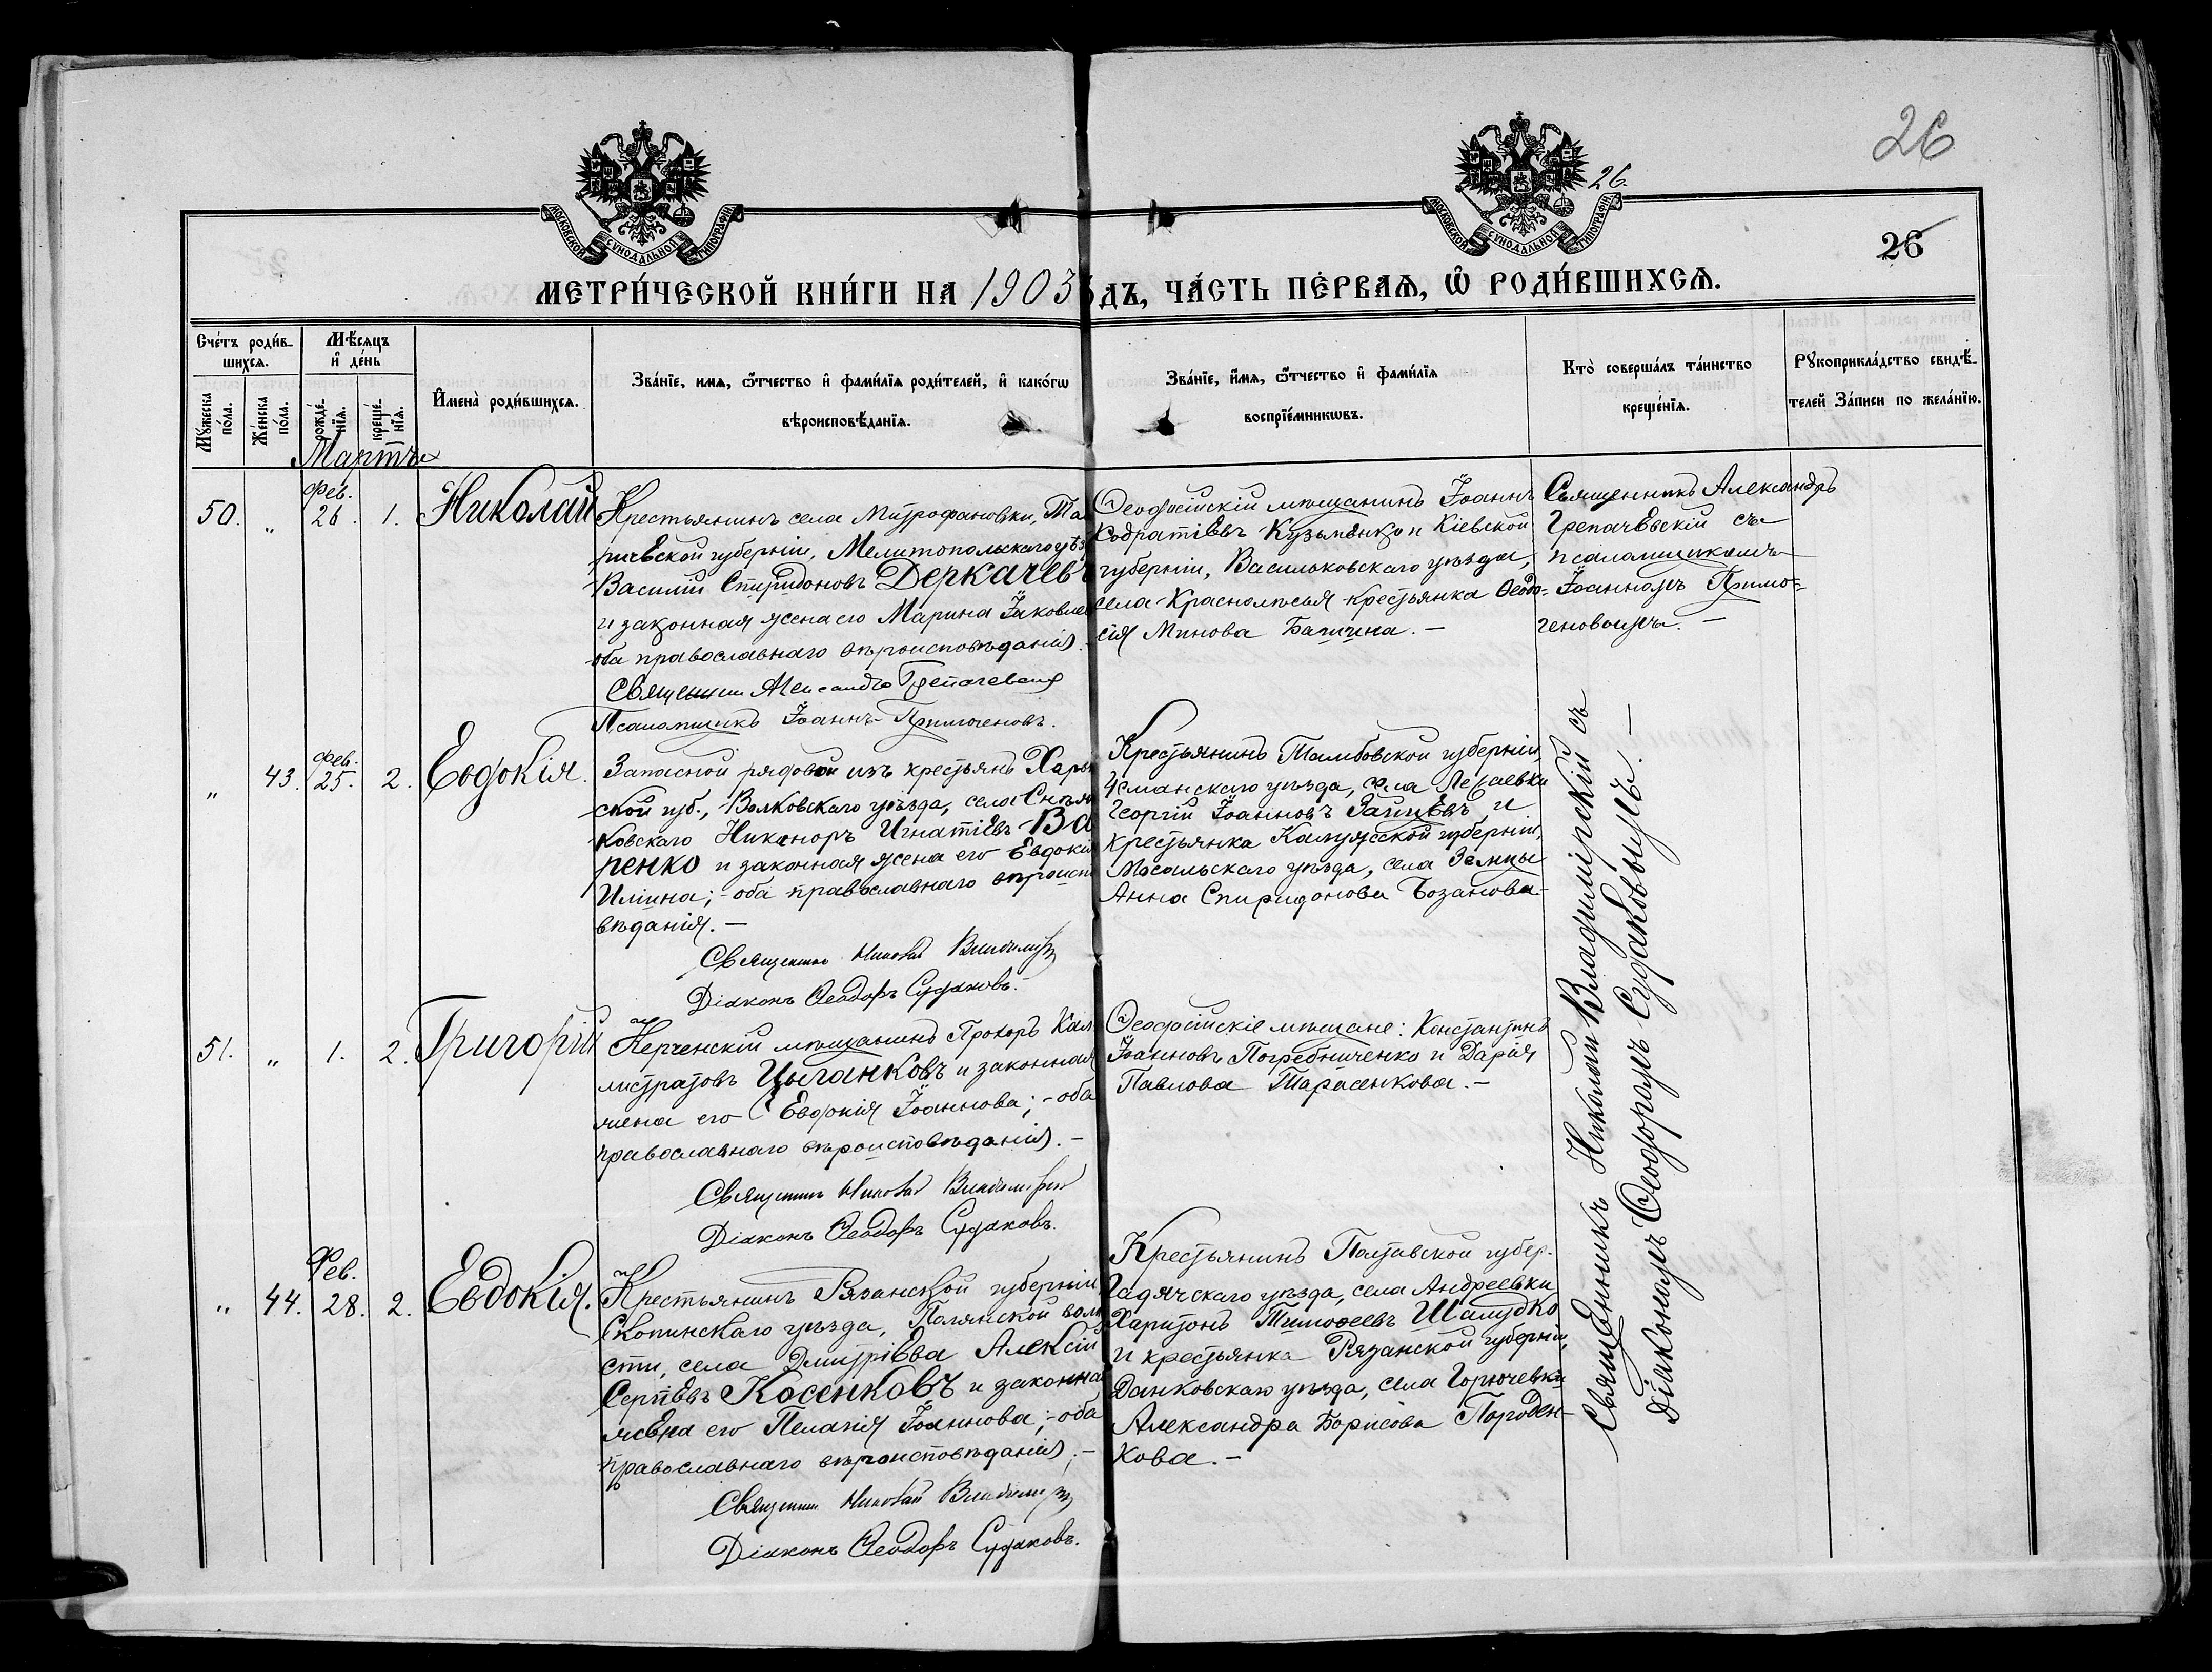 26
26.
26
МОСКОВСКОЙ СѴНОДАЛЬНОЙ ТИПОГРАФІИ
МОСКОВСКОЙ СѴНОДАЛЬНОЙ ТИПОГРАФІИ
МЕТРИ́ЧЕСКОЙ КНИ́ГИ НА 1903 ДЪ, ЧА́СТЬ ПЕ́РВАѦ, Ѽ РОДИ́ВШИХСѦ.
Сче́тъ роди́в-
шихсѧ.
Мѣ́сѧцъ
и҆ де́нь
Мꙋ́жеска
по́ла.
Же́нска
по́ла.
рожде́-
нїѧ.
креще́-
нїѧ.
И҆мена̀ роди́вшихсѧ.
Зва́нїе, имѧ, ѿтчество и҆ фами́лїѧ роди́телей, и҆ како́гѡ
вѣроисповѣ́данїѧ.
Зва́нїе, и҆́мѧ, ѿтчество и҆ фами́лїѧ
воспрїе́мникѡвъ.
Кто̀ соверша́лъ та́инство
креще́нїѧ.
Рꙋкоприкла́дство свидѣ́-
телей за́писи по жела́нїю.
Мартъ
50. „ Фев. 26. 1. Николай
Крестьянинъ села Митрофановки, Та
рической губерніи, Мелитопольскаго уѣз
Василій Спиридоновъ Деркачев
и законная жена его Марина Іаковле
оба православнаго вѣроисповѣданія.
Священникъ Александръ Грепачевскій
Псаломщикъ Іоаннъ Примогеновъ.
Ѳеодосійскій мѣщанинъ Іоаннъ
Кодратіевъ Кузьменко и Кіевской
губерніи, Васильковскаго уѣзда,
села Краснолѣсья крестьянка Ѳеодо-
сія Минова Башина. —
Священникъ Александръ
Грепачевскій съ
псаломщикомъ
Іоанномъ Примо-
геновымъ. —
„ 43. Фев. 25. 2. Евдокія.
Запасной рядовой изъ крестьянъ Харь
ской губ., Волковскаго уѣзда, села Снѣж
ковскаго Никаноръ Игнатіевъ Ва
ренко и законная жена его Евдокі
Иліина; - оба православнаго вѣроиспо
вѣданія. —
Священникъ Николай Владимірскій
Діаконъ Ѳеодоръ Судаковъ.
Крестьянинъ Тамбовской губерніи,
Усманскаго уѣзда, села
Георгій Іоанновъ Зайцевъ, и
крестьянка Калужской губерніи,
Мосальскаго уѣзда, села Земцы
Анна Спиридонова Бозанова. -
51. „ 1. 2. Григорій
Керченскій мѣщанинъ Прохоръ Кал
листратовъ Цыганковъ и законная
жена его Евдокія Іоаннова; - оба
православнаго вѣроисповѣданія. —
Священникъ Николай Владимірскій
Діаконъ Ѳеодоръ Судаковъ.
Ѳеодосійскіе мѣщане: Константинъ
Іоанновъ Погребниченко и Дарія
Павлова Тарасенкова. —
„ 44. Фев. 28. 2. Евдокія.
Крестьянинъ Рязанской губерніи
Скопинскаго уѣзда, Полянской воло
сти, села Дмитріева Алексій
Сергѣевъ Косенковъ и законна
жена его Пелагія Іоаннова; - оба
православнаго вѣроисповѣданія. —
Священникъ Николай Владимірскій
Діаконъ Ѳеодоръ Судаковъ.
Крестьянинъ Полтавской губер.
Гадячскаго уѣзда, села Андреевки
Харитонъ Тимоѳеевъ Шалудко
и крестьянка Рязанской губерніи,
Данковскаго уѣзда, села Горючевки
Александра Борисова Породен-
кова. —
Священникъ Николай Владимірскій съ
Діакономъ Ѳеодоромъ Судаковымъ. —